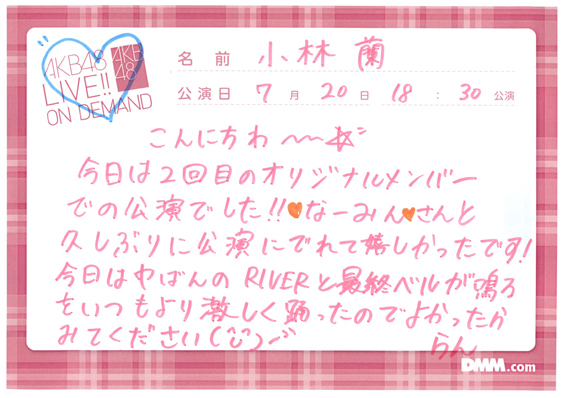 AKB48
LIVE!!
ON DEMAND
AKB
48
名前 小林蘭
公演日 7月20日 18:30公演
こんにちわ〜〜
今日は2回目のオリジナルメンバー
での公演でした!!♥なーみん♥さんと
久しぶりに公演にでれて嬉しかったです!
今日は中ばんのRIVERと最終ベルが鳴る
をいつもより激しく踊ったのでよかったら
みてください
らん
DMM.com